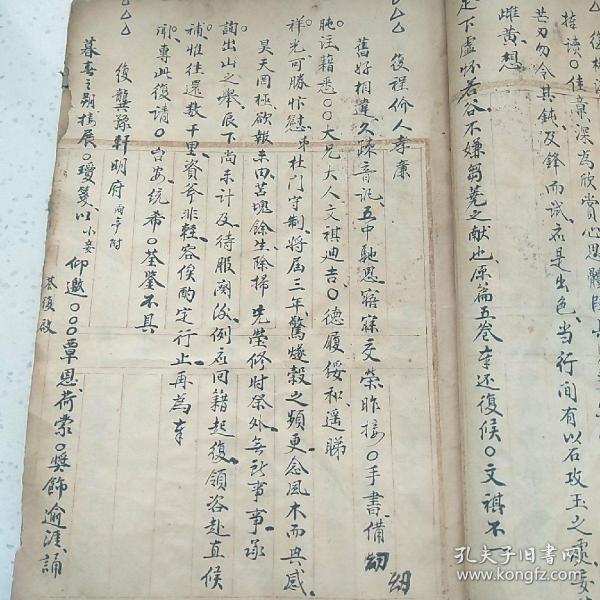 復梅
拄讀。佳章深為欣賞心思體
芒刃勿令其鈍及鋒而試居是出色當行間有以石攻玉之處妄
雌黃想
足下虛懷若谷不嫌芻蕘之献也原篇五卷奉还復候。文祺不一
復程价人孝廉
舊好相違久疎音訊五中馳思寤寐交縈昨接。手書備紉
肫注藉悉。。大兄大人文祺迪吉。德履綏和遥睇
祥光可勝忭慰弟杜門守制將屆三年驚燧穀之頻更念風木而興感
昊天罔極欲報末由苫塊餘生除掃先塋修时祭外無所事事承
詢出山之舉辰下尚未計及待服闋後例應回籍起復領咨赴直候
補惟往還数千里資斧非輕容俟酌定行止再為奉
聞專此復請。台安統希。荃鑒不具
復龔豫軒明府
暮春之朔接展。瓊箋以小妾仰邀。。覃恩荷蒙。獎飾逾涯誦
恭復啟
孔夫子旧书网
www.kongfz.com